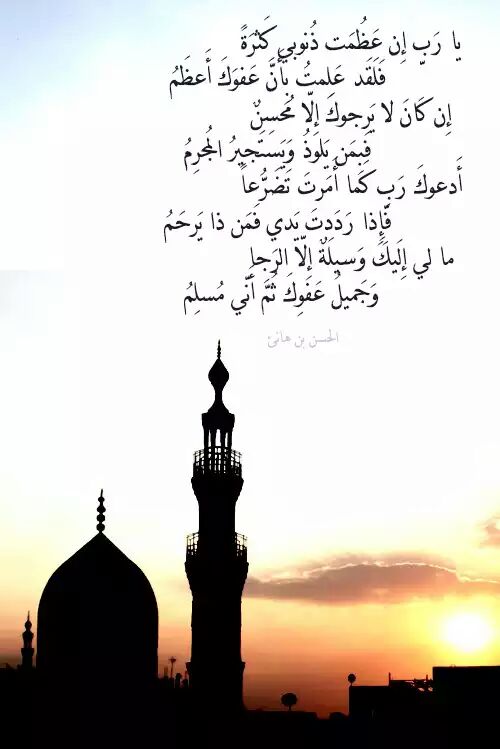 يا رَبِّ إِن عَظُمَت ذُنوبي كَثرَةً
فَلَقَد عَلِمتُ بِأَنَّ عَفوَكَ أَعظَمُ
إِن كَانَ لا يَرجوكَ إِلّا مُحسِنٌ
فَبِمَن يَلوذُ وَيَستَجيرُ المُجرِمُ
أَدعوكَ رَبِّ كَما أَمَرتَ تَضَرُّعاً
فَإِذا رَدَدتَ يَدي فَمَن ذا يَرحَمُ
ما لي إِلَيكَ وَسيلَةٌ إِلّا الرَجا
وَجَميلُ عَفوِكَ ثُمَّ أَنّي مُسلِمُ
الحسن بن هانئ